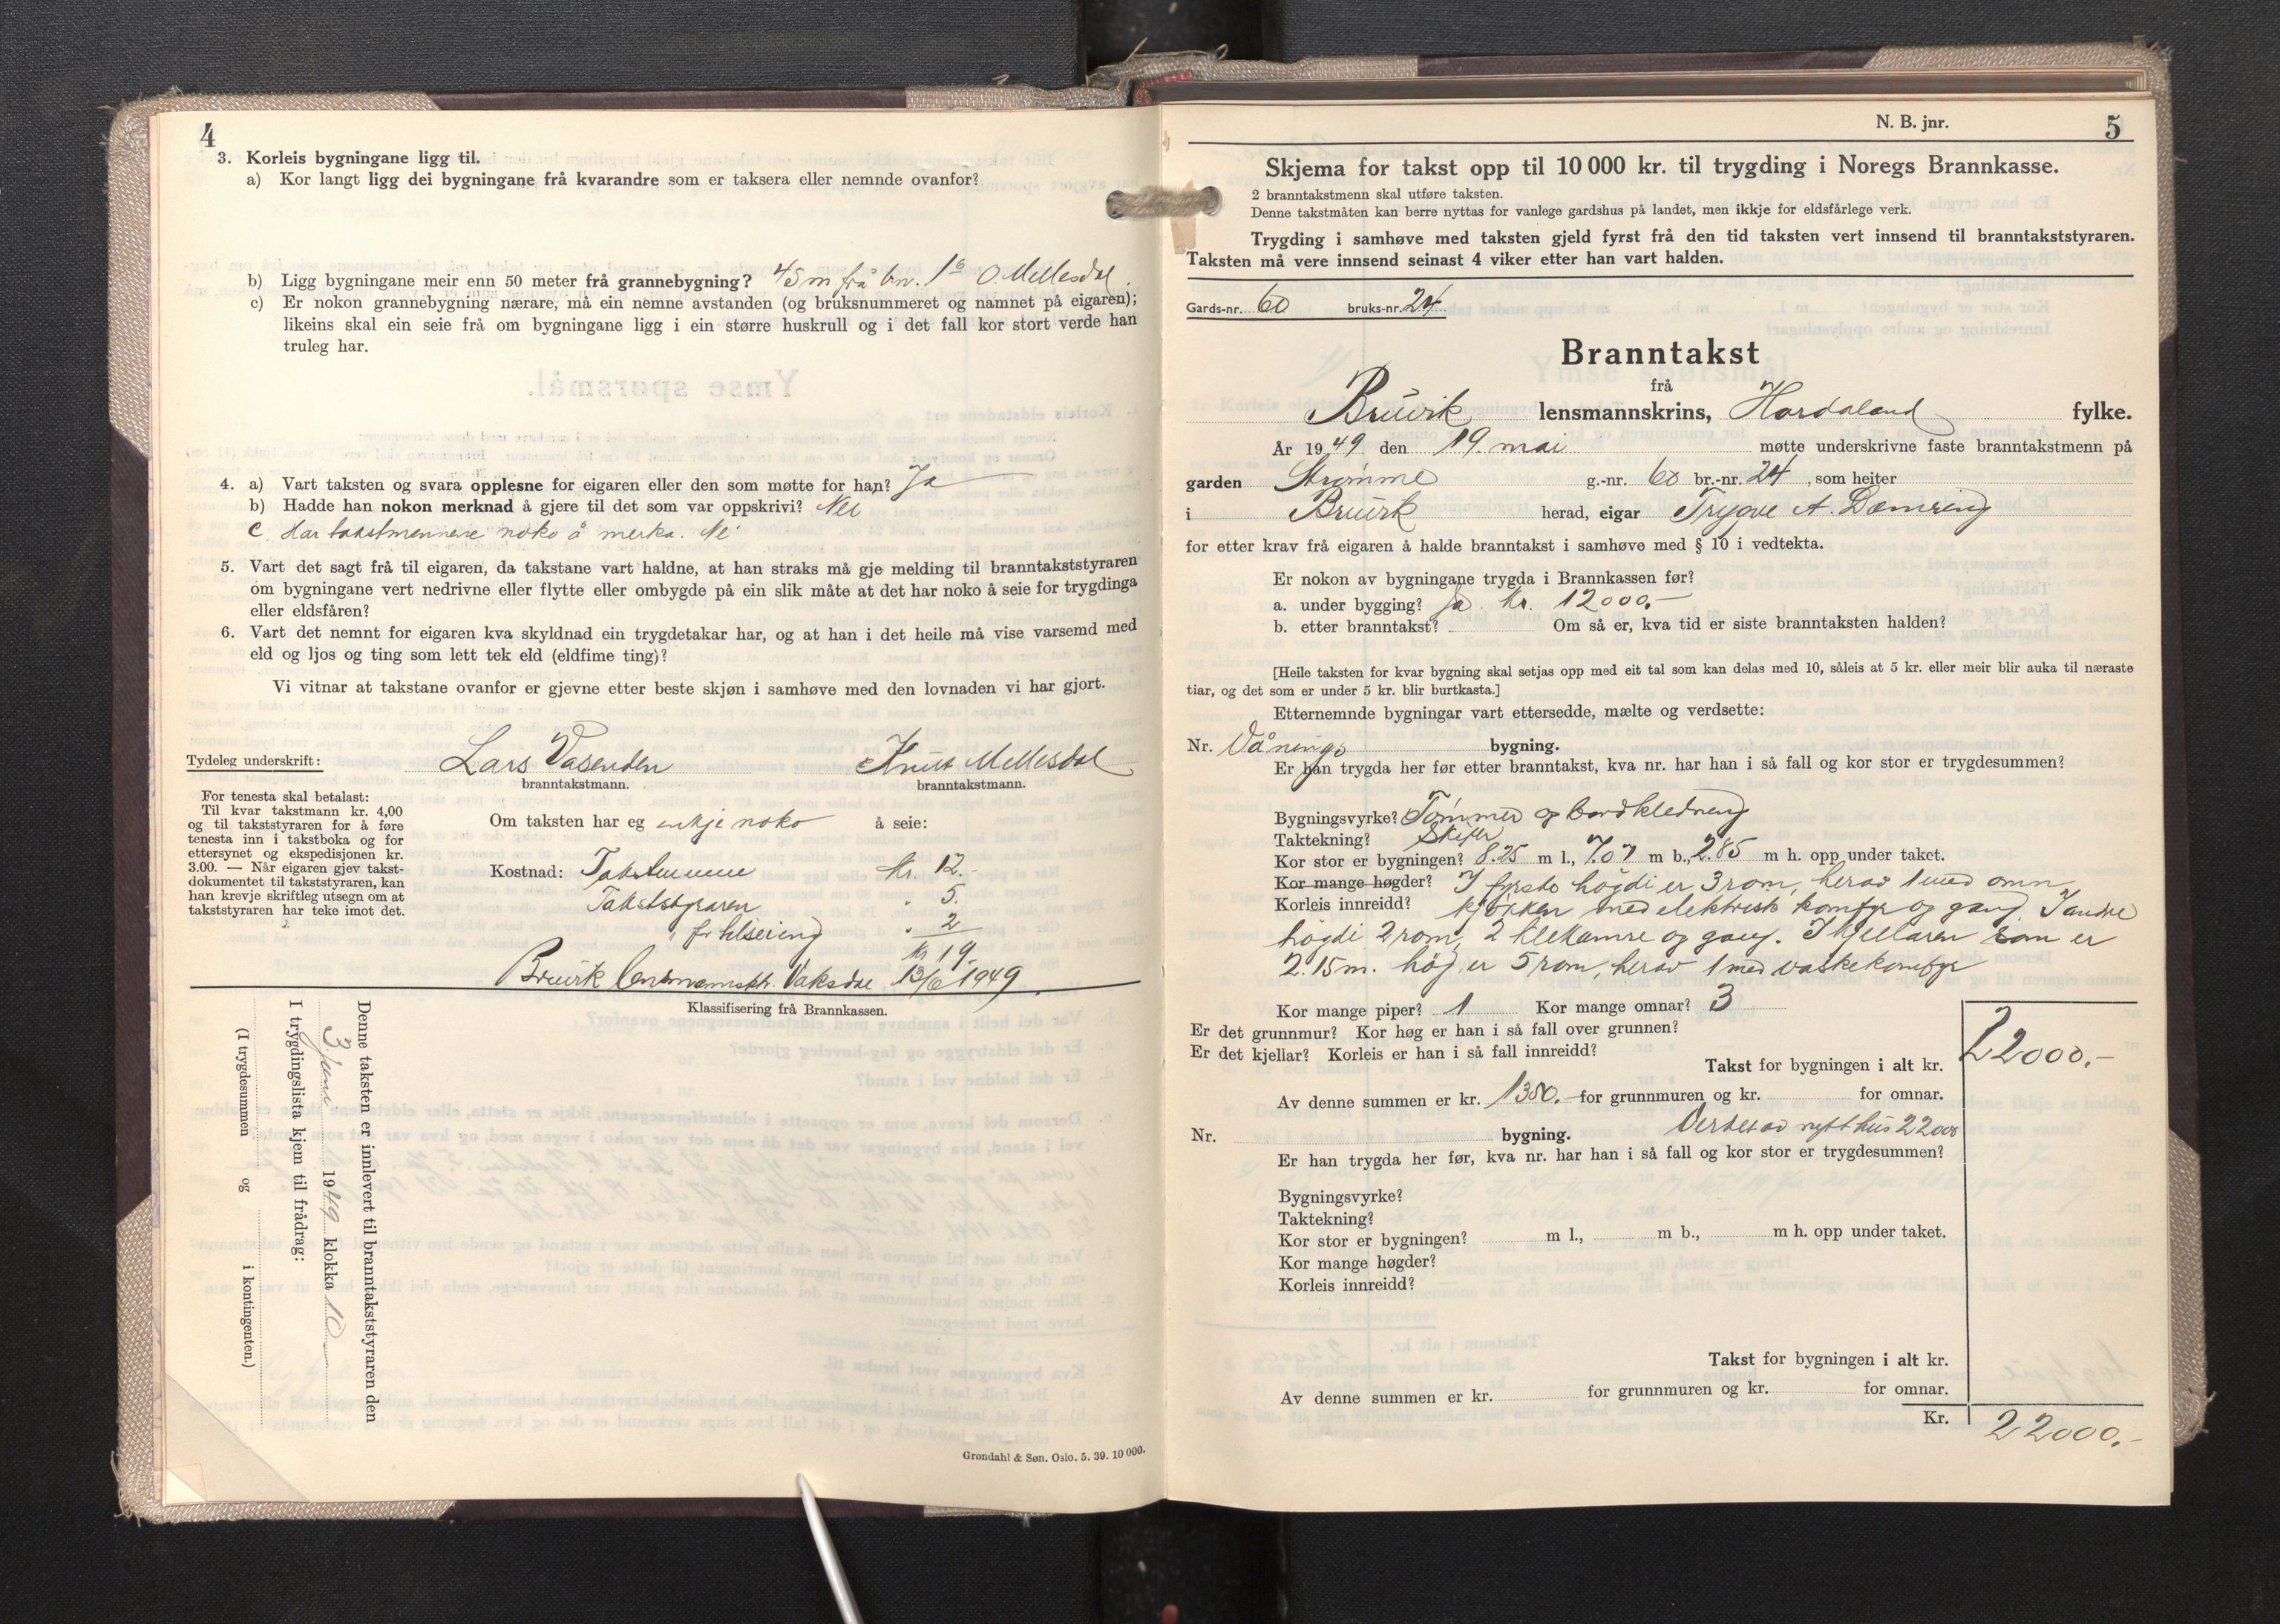 4
3. Korleis bygningane ligg til.
a) Kor langt ligg dei bygningane frå kvarandre som er taksera eller nemnde ovanfor?
b) Ligg bygningane meir enn 50 meter frå grannebygning? 45 m frå br. 16 O Mellesdal.
c) Er nokon grannebygning nærare, må ein nemne avstanden (og bruksnummeret og namnet på eigaren);
likeins skal ein seie frå om bygningane ligg i ein større huskrull og i det fall kor stort verde han
truleg har.
4. a) Vart taksten og svara opplesne for eigaren eller den som møtte for han? Ja
b) Hadde han nokon merknad å gjere til det som var oppskrivi? Nei
c. Har takstmennene noko å merka. Nei
5. Vart det sagt frå til eigaren, da takstane vart haldne, at han straks må gje melding til branntakststyraren
om bygningane vert nedrivne eller flytte eller ombygde på ein slik måte at det har noko å seie for trygdinga
eller eldsfåren?
6. Vart det nemnt for eigaren kva skyldnad ein trygdetakar har, og at han i det heile må vise varsemd med
eld og ljos og ting som lett tek eld (eldfime ting)?
Vi vitnar at takstane ovanfor er gjevne etter beste skjøn i samhøve med den lovnaden vi har gjort.
Tydeleg underskrift: Lars Vasenden Knut Mellesdal
branntakstmann. branntakstmann.
For tenesta skal betalast:
Til kvar takstmann kr. 4,00
og til takststyraren for å føre
tenesta inn i takstboka og for
ettersynet og ekspedisjonen kr.
3.00. — Når eigaren gjev takst-
dokumentet til takststyraren, kan
han krevje skriftleg utsegn om at
takststyraren har teke imot det.
Om taksten har eg inkje noko å seie:
Kostnad: Takstmennene kr. 12.-
Takststyraren " 5.
" 2
kr 19.
Bruvik lensmannsktr. Vaksdal 13/6 1949.
Klassifisering frå Brannkassen.
Denne taksten er innlevert til branntakststyraren den
3 juni 1949 klokka 10
I trygdingslista kjem til frådrag:
(I trygdesummen og i kontingenten.)
Grøndahl & Søn. Oslo. 5. 39. 10 000.
N. B. jnr. 5
Skjema for takst opp til 10 000 kr. til trygding i Noregs Brannkasse.
2 branntakstmenn skal utføre taksten.
Denne takstmåten kan berre nyttas for vanlege gardshus på landet, men ikkje for eldsfårlege verk.
Trygding i samhøve med taksten gjeld fyrst frå den tid taksten vert innsend til branntakststyraren.
Taksten må vere innsend seinast 4 viker etter han vart halden.
Gards-nr. 60 bruks-nr. 24
Branntakst
frå
Bruvik lensmannskrins, Hordaland fylke.
År 1949 den 19. mai møtte underskrivne faste branntakstmenn på
garden Strømme g.-nr. 60 br.-nr. 24, som heiter
i Bruvik herad, eigar Trygve A. Dæmring
for etter krav frå eigaren å halde branntakst i samhøve med § 10 i vedtekta.
Er nokon av bygningane trygda i Brannkassen før?
a. under bygging? Ja. Kr. 12000,-
b. etter branntakst? Om så er, kva tid er siste branntaksten halden?
[Heile taksten for kvar bygning skal setjas opp med eit tal som kan delas med 10, såleis at 5 kr. eller meir blir auka til næraste
tiar, og det som er under 5 kr. blir burtkasta.]
Etternemnde bygningar vart ettersedde, mælte og verdsette:
Nr. Vånings bygning.
Er han trygda her før etter branntakst, kva nr. har han i så fall og kor stor er trygdesummen?
Bygningsvyrke? Tømmer og bordkledning
Taktekning? Skifer
Kor stor er bygningen? 8.25 m l., 7.07 m b., 2.85 m h. opp under taket.
Kor mange høgder? I fyrste högdi er 3 rom, herav 1 med omn
Korleis innreidd? kjøkken med elektrisk komfyr og gang. I andre
högdi 2 rom, 2 klekamre og gang. I kjellaren som er
2.15 m. høg er 5 rom, herav 1 med vaskekomfyr
Kor mange piper? 1 Kor mange omnar? 3
Er det grunnmur? Kor høg er han i så fall over grunnen?
Er det kjellar? Korleis er han i så fall innreidd?
Takst for bygningen i alt kr. 22000.-
Av denne summen er kr. 1380.- for grunnmuren og kr. for omnar.
Verdet av nytt hus 22000
Nr. bygning.
Er han trygda her før, kva nr. har han i så fall og kor stor er trygdesummen?
Bygningsvyrke?
Taktekning?
Kor stor er bygningen? m l., m b., m h. opp under taket.
Kor mange høgder?
Korleis innreidd?
Takst for bygningen i alt kr.
Av denne summen er kr. for grunnmuren og kr. for omnar.
Kr. 22000.-